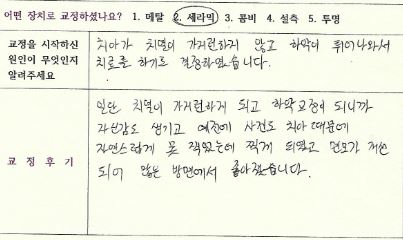 어떤 장치로 교정하셨나요? 1. 메탈 2. 세라믹 3. 콤비 4. 설측 5. 투명
교정을 시작하신 원인이 무엇인지 알려주세요
치아가 치열이 가지런하지 않고 하악이 튀어나와서
치료를 하기로 결정하였습니다.
교 정 후 기
일단 치열이 가지런하게 되고 하악교정이 되니까
자신감도 생기고 예전에 사진도 치아 때문에
자연스럽게 못 찍었는데 찍게 되었고 외모가 개선
되어 많은 방면에서 좋아졌습니다.